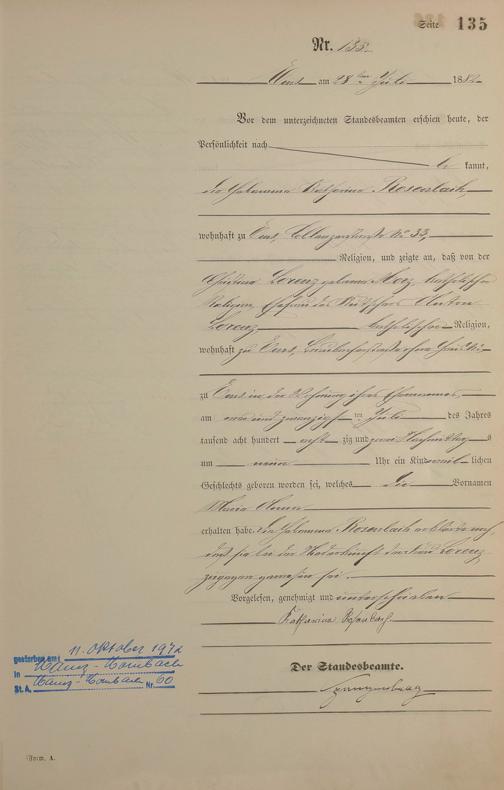 Seite 135
Nr. 135.
Ems am 28ten Juli 1882
Vor dem unterzeichneten Standesbeamten erschien heute, der
Persönlichkeit nach
be kannt,
die Hebamme Katharina Rosenbach,
wohnhaft zu Ems, No 33,
Religion, und zeigte an, daß von der
Christina Lorenz geborene katholischer
Religion, Ehefrau des Anton
Lorenz katholischer Religion,
wohnhaft zu Ems,
zu Ems in der Wohnung ihres Ehemannes,
am ten Juli des Jahres
tausend acht hundert acht zig und zwei Nachmittags
um neun Uhr ein Kind weib lichen
Geschlechts geboren worden sei, welches die Vornamen
Maria Anna
erhalten habe. Die Hebamme Rosenbach erklärte noch,
daß sie bei der Niederkunft der Frau Lorenz
zugegen gewesen sei.
Vorgelesen, genehmigt und unterschrieben
Katharina Rosenbach
Der Standesbeamte.
gestorben am: 11. Oktober 1972
in Mainz-Mombach
St. A. Mainz-Mombach Nr. 60
Form. A.